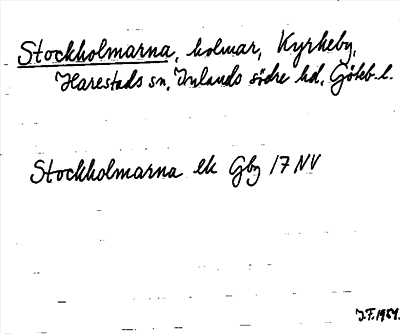 Stockholmarna, holmar, Kyrkeby,
Harestads sn, Inlands södre hd, Göteb. l.
Stockholmarna ek Gby 17 NV
J.F. 1954.